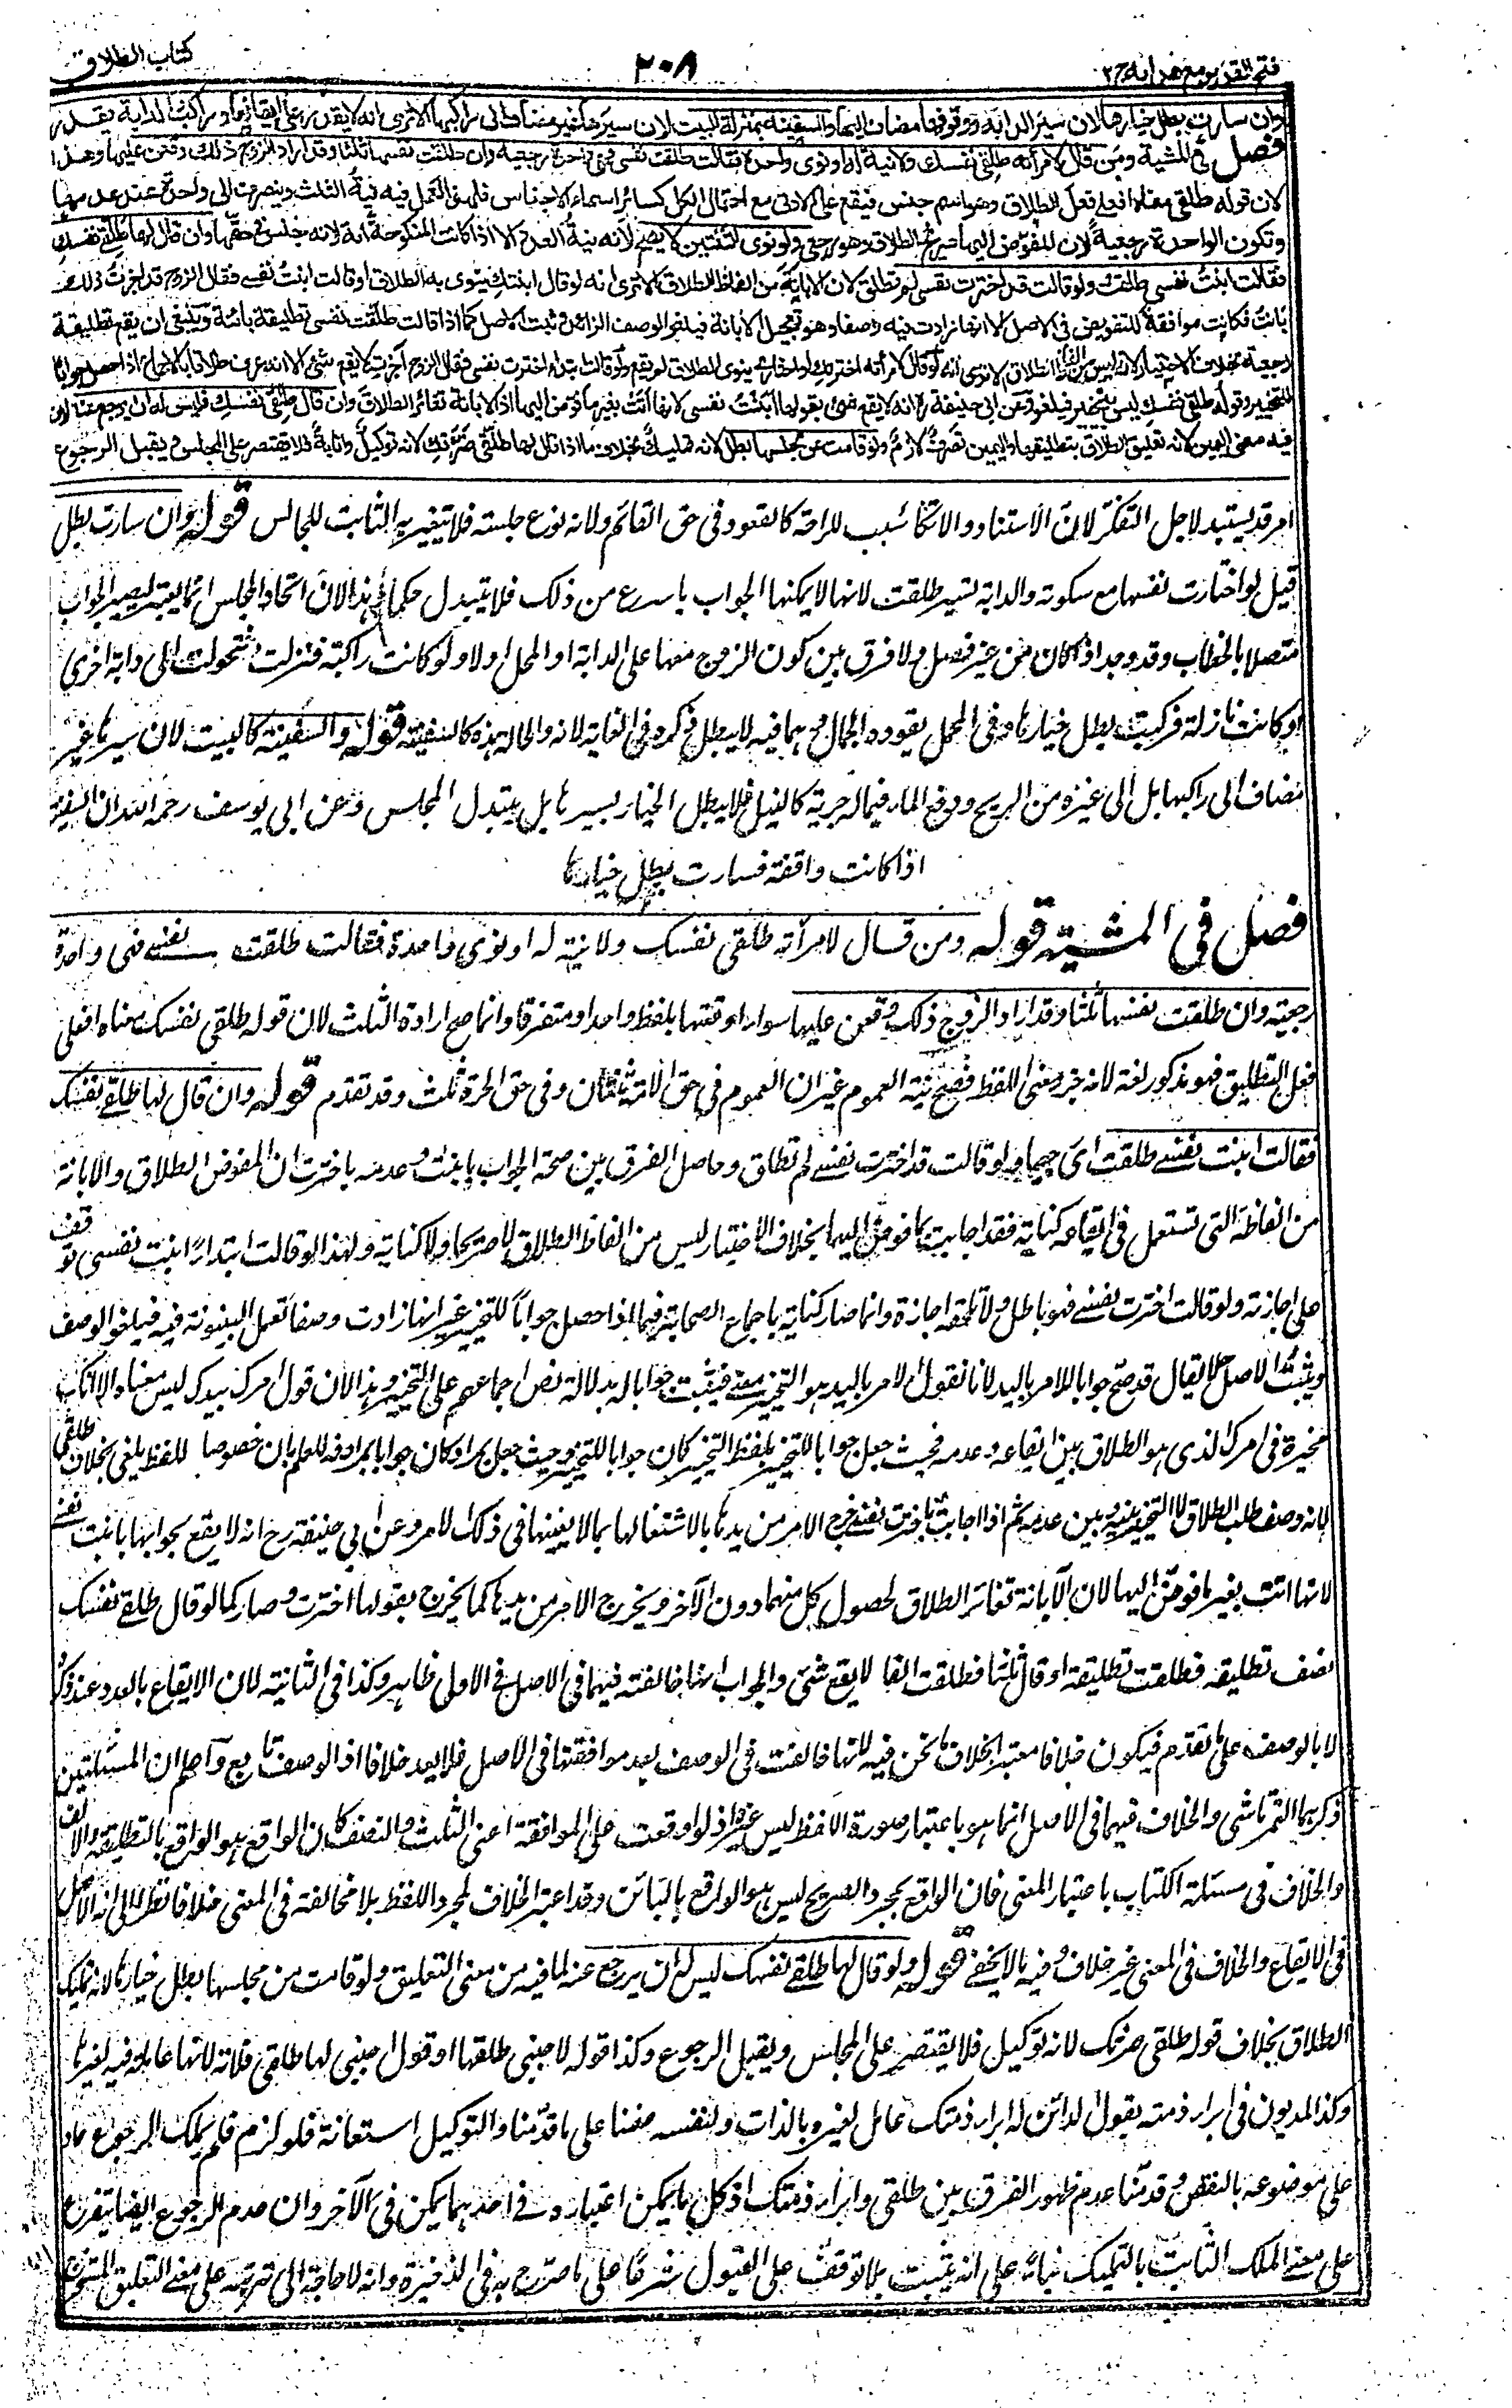 فتح القدیر مع هدایه ج۲
۲۰۸
كتاب الطلاق
وان سارت بطل خیارها لان سیر الدابة ووقوفها مضاف الیها والسفینة بمنزلة البیت لان سیرها غیر مضاف الی راكبها الا تری انه لا یقدر علی ایقافها وراكب الدابة یقدر
فصل فی المشیة ومن قال لامرأته طلقی نفسك ولا نیة له او نوی واحدة فقالت طلقت نفسی فهی واحدة رجعیة وان طلقت نفسها ثلثا وقد اراد الزوج ذلك وقعن علیها وهذا
لان قوله طلقی معناه افعلی فعل الطلاق وهو اسم جنس فیقع علی الادنی مع احتمال الكل كسائر اسماء الاجناس فلهذا تعمل فیه نیة الثلث وینصرف الی واحدة عند عدمها
وتكون الواحدة رجعیة لان المفوض الیها صریح الطلاق وهو رجعی ولو نوی الثنتین لا یصح لانه نیة العدد الا اذا كانت المنكوحة امة لانه جنس فی حقها وان قال لها طلقی نفسك
فقالت ابنت نفسی طلقت ولو قالت قد اخترت نفسی لم تطلق لان الابانة من الفاظ الطلاق الا تری انه لو قال ابنتك ینوی به الطلاق او قالت ابنت نفسی فقال الزوج قد اجزت ذلك
بانت فكانت موافقة للتفویض فی الاصل الا انها زادت فیه وصفا وهو تعجیل الابانة فیلغو الوصف الزائد وثبت الاصل كما اذا قالت طلقت نفسی تطلیقة بائنة وینبغی ان یقع تطلیقة
رجعیة بخلاف الاختیار لانه لیس من الفاظ الطلاق الا تری انه لو قال لامرأته اخترتك او اختاری ینوی الطلاق لم یقع ولو قالت ابتداء اخترت نفسی فقال الزوج اجزت لا یقع شئ الا انه عرف طلاقا بالاجماع اذا حصل جوابا
للتخییر وقوله طلقی نفسك لیس بتخییر فیلغو وعن ابی حنیفة ره انه لا یقع شئ بقولها ابنت نفسی لانها اتت بغیر ما فوض الیها اذ الابانة تغائر الطلاق وان قال طلقی نفسك فلیس له ان یرجع عنه لان
فیه معنی الیمین لانه تعلیق الطلاق بتطلیقها والیمین تصرف لازم ولو قامت عن مجلسها بطل لانه تملیك بخلاف ما اذا قال لها طلقی ضرتك لانه توكیل وانابة فلا یقتصر علی المجلس ویقبل الرجوع
امر قد یستبد لاجل التفكر لان الاستناد والاتكاء سبب للراحة كالقعود فی حق القائم ولانه نوع جلسته فلا یتغیر به الثابت للجالس قوله وان سارت بطل
قیل لو اختارت نفسها مع سكوته والدابة تسیر طلقت لانها لا یمكنها الجواب باسرع من ذلك فلا یتبدل حكما وهذا لان اتحاد المجلس انما یعتبر لیصیر الجواب
متصلا بالخطاب وقد وجد اذا كان من غیر فصل ولا فرق بین كون الزوج معها علی الدابة او المحمل او لا ولو كانت راكبة فنزلت او تحولت الی دابة اخری
او كانت نازلة فركبت بطل خیارها وفی المحمل یقوده الجمال وهما فیه لا یبطل ذكره فی الغایة لانه والحالة هذه كالسفینة قوله والسفینة كالبیت لان سیرها غیر
مضاف الی راكبها بل الی غیره من الریح ودفع الماء فیما له جریة كالنیل فلا یبطل الخیار بسیرها بل بتبدل المجلس وعن ابی یوسف رحمه الله ان السفینة
اذا كانت واقفة فسارت بطل خیارها
فصل فی المشیة قوله ومن قال لامرأته طلقی نفسك ولا نیة له او نوی واحدة فقالت طلقت نفسی فهی واحدة
رجعیة وان طلقت نفسها ثلثا وقد اراد الزوج ذلك وقعن علیها سواء اوقعتها بلفظ واحد او متفرقا وانما صح ارادة الثلث لان قوله طلقی نفسك معناه افعلی
فعل التطلیق فهو مذكور لغة لانه جزء معنی اللفظ فصح نیة العموم غیر ان العموم فی حق الامة ثنتان وفی حق الحرة ثلث وقد تقدم قوله وان قال لها طلقی نفسك
فقالت ابنت نفسی طلقت ای رجعیا ولو قالت قد اخترت نفسی لم تطلق وحاصل الفرق بین صحة الجواب بابنت وعدمه باخترت ان المفوض الطلاق والابانة
من الفاظه التی تستعمل فی ایقاعه كنایة فقد اجابت بما فوض الیها بخلاف الاختیار لیس من الفاظ الطلاق لا صریحا ولا كنایة ولهذا لو قالت ابتداء ابنت نفسی توقف
علی اجازته ولو قالت اخترت نفسی فهو باطل ولا تلحقه اجازة وانما صار كنایة باجماع الصحابة فیما اذا حصل جوابا للتخییر غیر انها زادت وصفا تعجل البینونة فیه فیلغو الوصف
ویثبت الاصل لا یقال قد صح جوابا للامر بالید لانا نقول الامر بالید هو التخییر معنی فیثبت جوابا له بدلالة نص اجماعهم علی التخییر وهذا لان قوله امرك بیدك لیس معناه الا انك
مخیرة فی امرك الذی هو الطلاق بین ایقاعه وعدمه فحیث جعل جوابا للتخییر بلفظ التخییر كان جوابا للتخییر وحیث جعل بمرادفه كان جوابا بمرادفه للعلم بان خصوص اللفظ یلغی بخلاف طلقی
لانه وصف طلب الطلاق لا التخییر بینه وبین عدمه ثم اذا اجابت باخترت نفسی خرج الامر من یدها بالاشتغالها بما لا یعنیها فی ذلك الامر وعن ابی حنیفة رح انه لا یقع بجوابها بابنت نفسی
لانها اتت بغیر ما فوض الیها لان الابانة تغائر الطلاق لحصول كل منهما دون الآخر ویخرج الامر من یدها كما یخرج بقولها اخترت وصار كما لو قال طلقی نفسك
نصف تطلیقة فطلقت تطلیقة او قال ثلثا فطلقت الفا لا یقع شئ والجواب انها خالفته فیهما فی الاصل فی الاولی ظاهر وكذا فی الثانیة لان الایقاع بالعدد عند ذكره
لا بالوصف علی ما تقدم فیكون خلافا معتبرا بخلاف ما نحن فیه لانها خالفت فی الوصف بعد موافقتها فی الاصل فلا یعد خلافا اذ الوصف تابع واعلم ان المسئلتین
ذكرهما التمرتاشی والخلاف فیهما فی الاصل انما هو باعتبار صورة اللفظ لیس غیر اذ لو اوقعت علی الموافقة اعنی الثلث والنصف كان الواقع هو الواقع بالتطلیقة والالف
والخلاف فی مسئلة الكتاب باعتبار المعنی فان الواقع بمجرد الصریح لیس هو الواقع بالبائن وقد اعتبر الخلاف لمجرد اللفظ بلا مخالفة فی المعنی خلافا نظرا الی انه الاصل
فی الایقاع والخلاف فی المعنی غیر خلاف وفیه ما لا یخفی قوله ولو قال لها طلقی نفسك لیس له ان یرجع عنه لما فیه من معنی التعلیق ولو قامت من مجلسها بطل خیارها لانه تملیك
الطلاق بخلاف قوله طلقی ضرتك لانه توكیل فلا یقتصر علی المجلس ویقبل الرجوع وكذا قوله لاجنبی طلقها او قول اجنبی لها طلقی فلانة لانها عاملة فیه لغیرها
وكذا المدیون فی ابراء ذمته بقول الدائن له ابرء ذمتك عامل لغیره بالذات ولنفسه ضمنا علی ما قدمنا والتوكیل استعانة فلو لزم فلم یملك الرجوع عاد
علی موضوعه بالنقض وقدمنا عدم ظهور الفرق بین طلقی وابرء ذمتك اذ كل ما یمكن اعتباره فی احدهما یمكن فی الآخر وان عدم الرجوع ایضا یتفرع
علی معنی الملك الثابت بالتملیك بناء علی انه یثبت بلا توقف علی القبول شرعا علی ما صرح به فی الذخیرة وانه لا حاجة الی ترتبه علی معنی التعلیق المستخرج